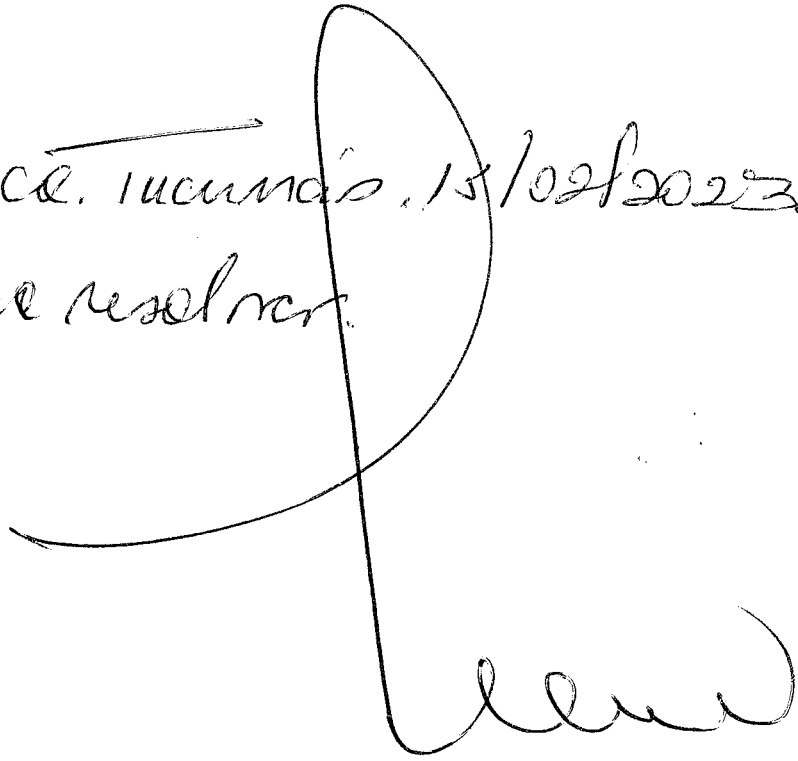 ca. Tucumán, 15/02/2023
a resolver.